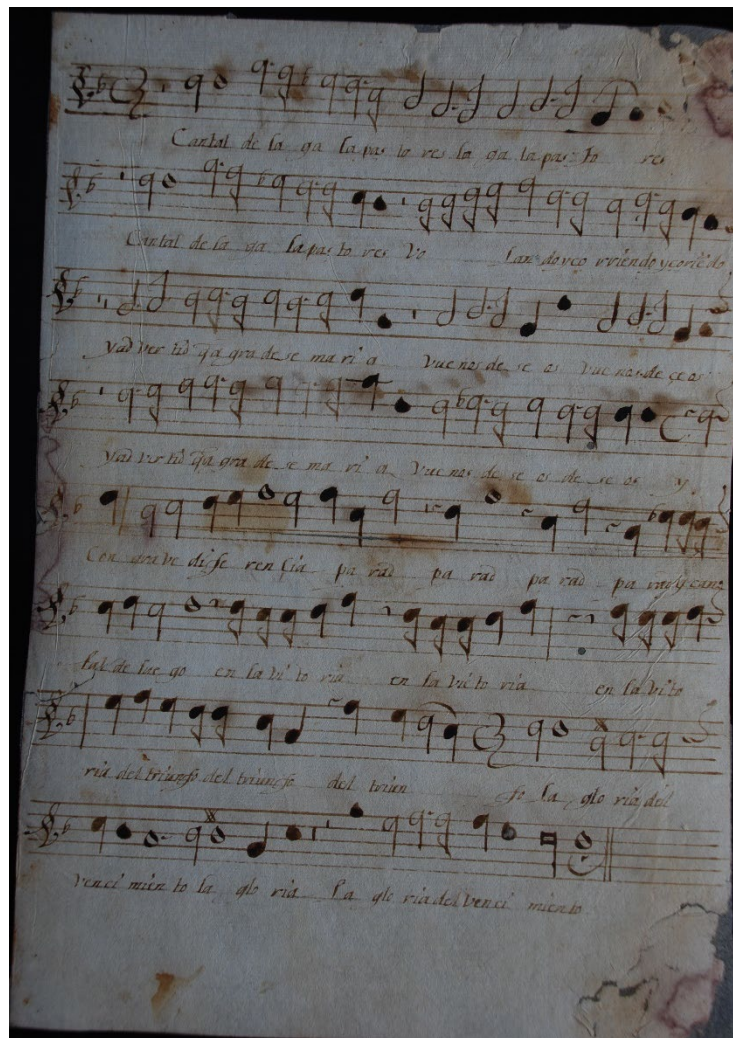 Cantal de la ga la pas to res la ga la pas to res
Cantal de la ga la pas to res Vo lan do y co rriendo y coriēdo
yad ver tid q̄ a gra de se ma ri a vue nos de se os vue nos de çe os
yad ver tid q̄ a gra de se ma ri a vue nos de se os de se os y
Con gra ve di fe ren çia pa rad pa rad pa rad pa rad y can
tal de lue go en la vi to ria en la vi to ria en la vi to
ria del triunfo del triunfo del triun fo la glo ria del
venci mien to la glo ria La glo ria del venci miento